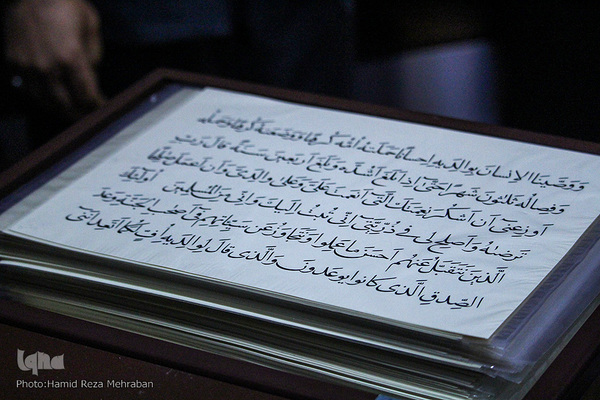 ووصینا الانسان بوالدیه احسانا حملته امه کرها ووضعته کرها وحمله
وفصاله ثلاثون شهرا حتی اذا بلغ اشده وبلغ اربعین سنة قال رب
اوزعنی ان اشکر نعمتک التی انعمت علی وعلی والدی وان اعمل صالحا
ترضیه واصلح لی فی ذریتی انی تبت الیک وانی من المسلمین اولئک
الذین نتقبل عنهم احسن ما عملوا ونتجاوز عن سیئاتهم فی اصحب الجنة وعد
الصدق الذی کانوا یوعدون والذی قال لوالدیه اف لکما اتعداننی
Iqna
Photo:Hamid Reza Mehraban